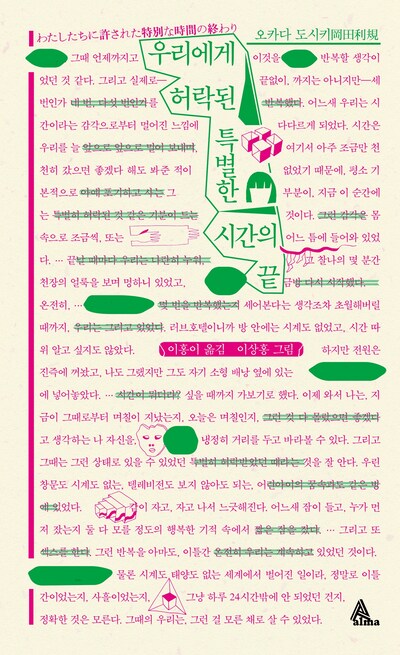 わたしたちに許された特別な時間の終わり
오카다 도시키岡田利規
우리에게
허락된
특별한
시간의
끝
그때 언제까지고 이것을 반복할 생각이
었던 것 같다. 그리고 실제로— 끝없이, 까지는 아니지만—세
번인가 네 번, 다섯 번인가를 반복했다. 어느새 우리는 시
간이라는 감각으로부터 멀어진 느낌에 다다르게 되었다. 시간은
우리를 늘 앞으로 앞으로 밀어 보내며, 여기서 아주 조금만 천
천히 갔으면 좋겠다 해도 봐준 적이 없었기 때문에, 평소 기
본적으로 아예 포기하고 사는 그 부분이, 지금 이 순간에
는 특별히 허락된 것 같은 기분이 드는 것이다. 그런 감각은 몸
속으로 조금씩, 또는 어느 틈에 들어와 있었
다. … 끝난 때마다 우리는 나란히 누워, 그 찬나의 몇 분간
천장의 얼룩을 보며 멍하니 있었고, 금방 다시 시작했다.
온전히, … 몇 번을 반복했는지 세어본다는 생각조차 초월해버릴
때까지, 우리는 그러고 있었다. 러브호텔이니까 방 안에는 시계도 없었고, 시간 따
위 알고 싶지도 않았다. 이홍이 옮김 이상홍 그림 하지만 전원은
진즉에 꺼놨고, 나도 그랬지만 그도 자기 소형 배낭 옆에 있는
에 넣어놓았다. … 시간이 뭐더라? 싶을 때까지 가보기로 했다. 이제 와서 나는, 지
금이 그때로부터 며칠이 지났는지, 오늘은 며칠인지, 그런 것 다 몰랐으면 좋겠다
고 생각하는 나 자신을, 냉정히 거리를 두고 바라볼 수 있다. 그리고
그때는 그런 상태로 있을 수 있었던 특별히 허락받았던 때라는 것을 잘 안다. 우린
창문도 시계도 없는, 텔레비전도 보지 않아도 되는, 어린아이의 꿈속과도 같은 방
에 있었다. 이 자고, 자고 나서 느긋해진다. 어느새 잠이 들고, 누가 먼
저 잤는지 둘 다 모를 정도의 행복한 기적 속에서 짧은 잠을 잤다. … 그리고 또
섹스를 한다. 그런 반복을 아마도, 이틀간 온전히 우리는 계속하고 있었던 것이다.
물론 시계도 태양도 없는 세계에서 벌어진 일이라, 정말로 이틀
간이었는지, 사흘이었는지, 그냥 하루 24시간밖에 안 되었던 건지,
정확한 것은 모른다. 그때의 우리는, 그런 걸 모른 채로 살 수 있었다.
alma